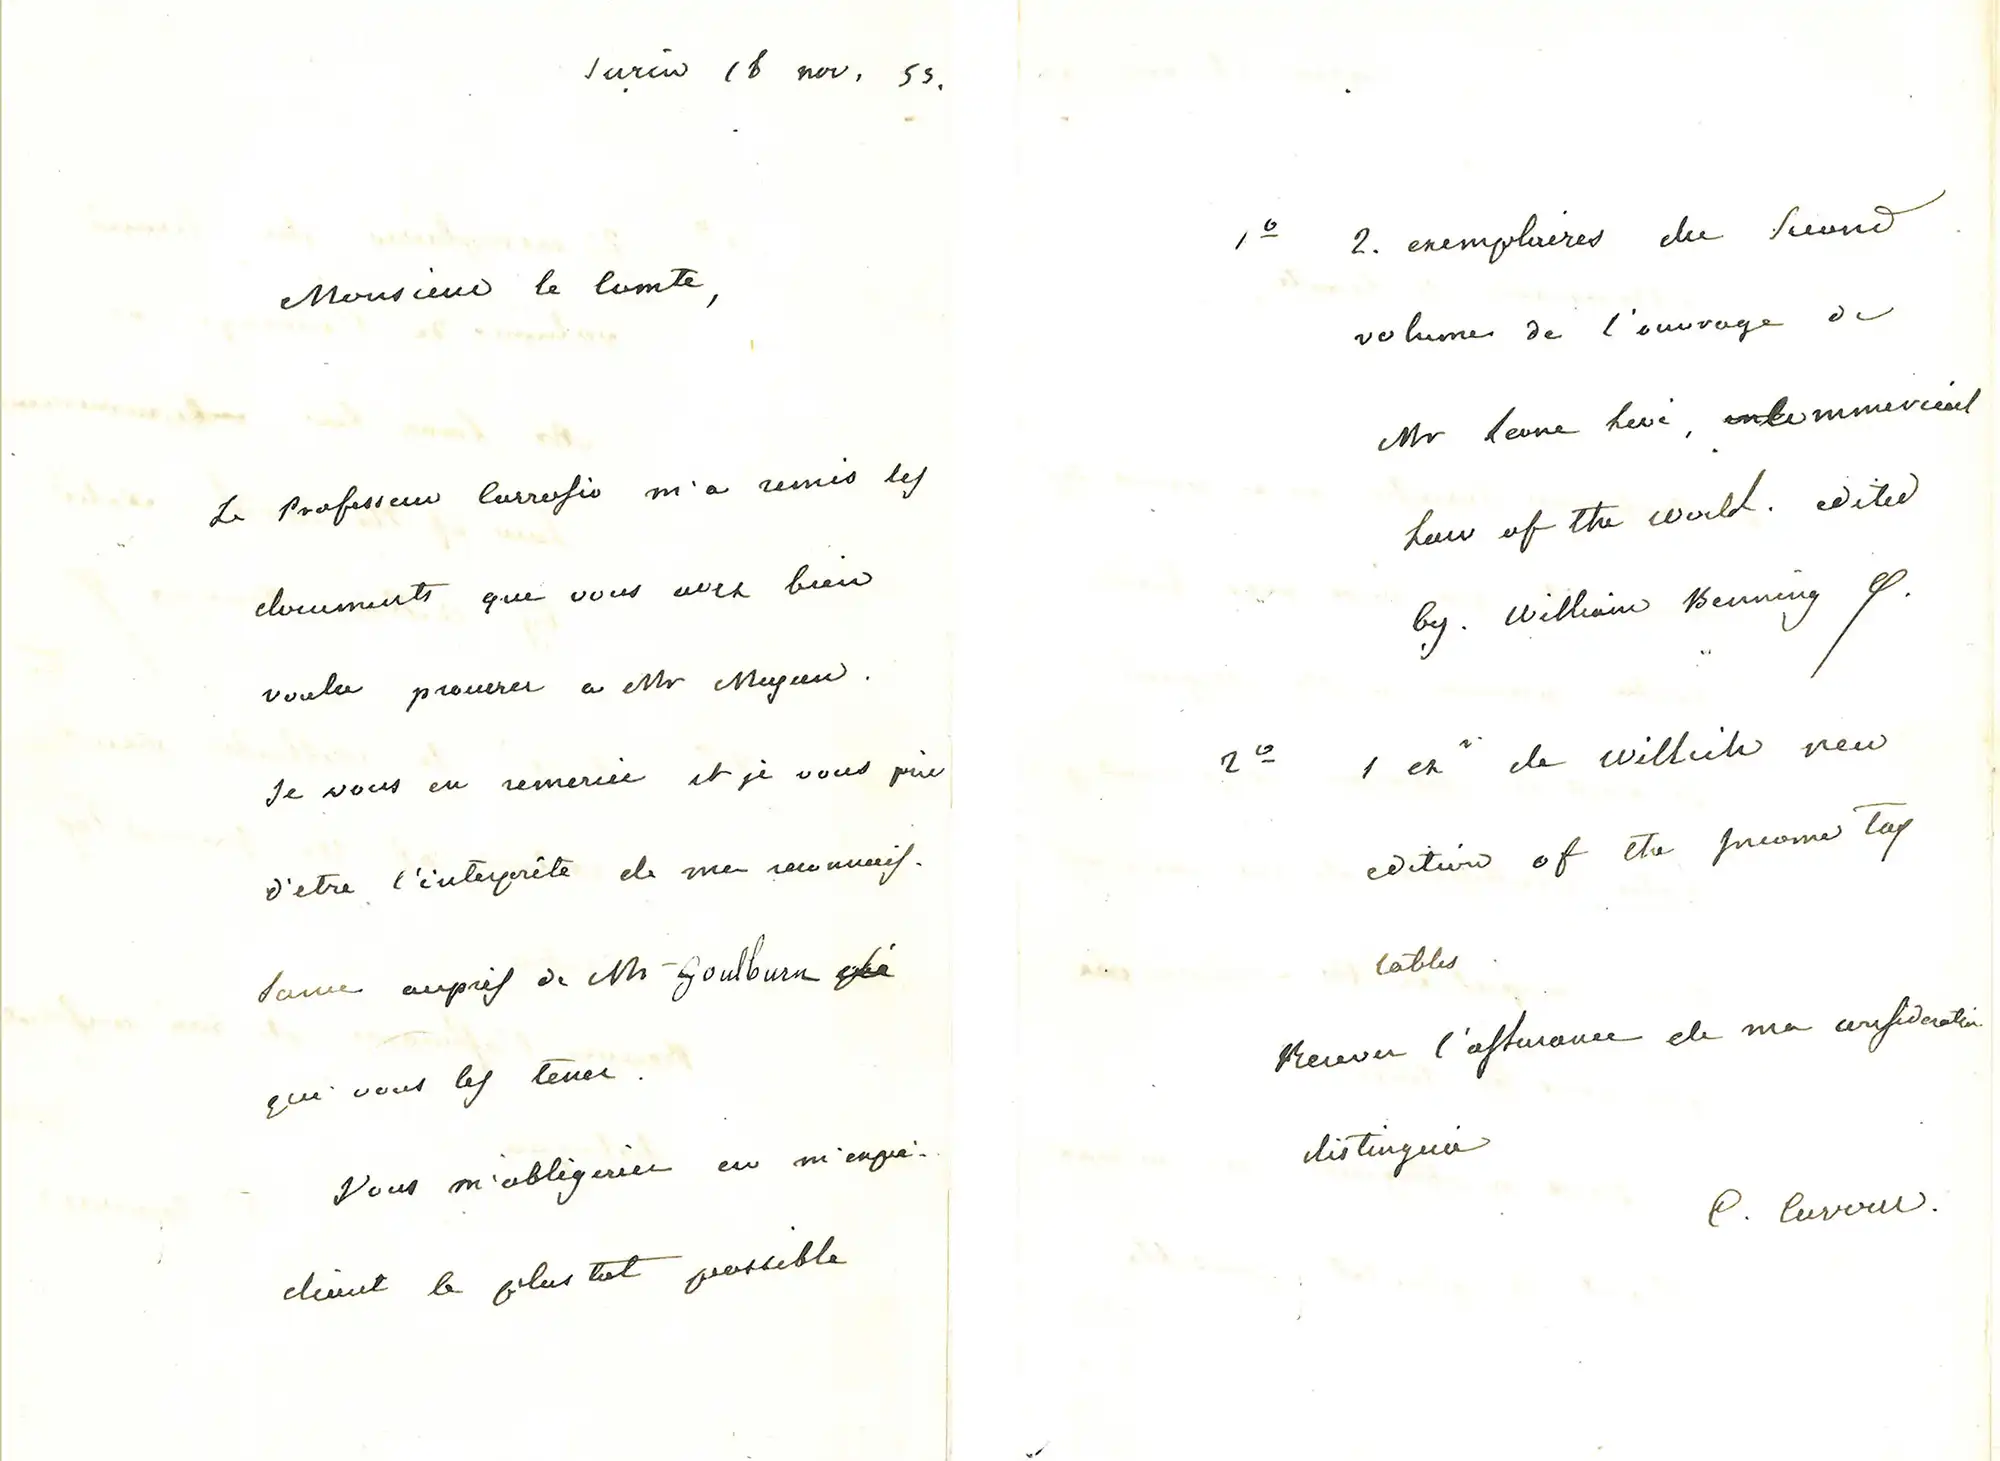 Turin 16 nov. 53.
Monsieur le Comte,
Le Professeur Carrosio m'a remis les
documents que vous avez bien
voulu procurer a Mr
Je vous en remercie et je vous prie
d'etre l'interprête de ma reconnais-
sance auprès de Mr Goulburn
qui vous les tenez.
Vous m'obligeriez en m'expé-
diant le plus tot possible
1º 2. exemplaires du Second
volume de l'ouvrage de
Mr Leone Levi, commercial
Law of the world. edited
by. William Benning
2º 1 exr de Willich new
edition of the Income Tax
tables
Recever l'assurance de ma consideration
distinguée
C. Cavour.